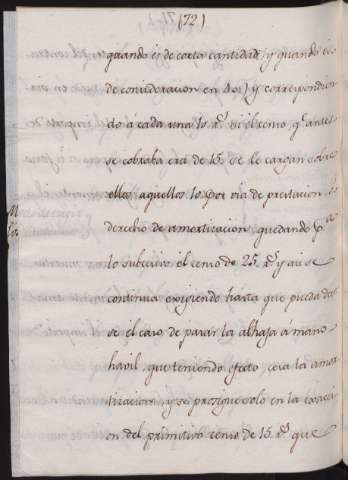 (72)
quando es de corta cantidad, y quando es
de consideracion en 40) y correspondien
do a cada una 10 r.s si el censo, q.e antes
se cobraba era de 15, se le cargan sobre
ellos aquellos 10 por via de prestacion
derecho de amortizacion, quedando
lo subcesivo el censo de 25 r.s y asi se
continua exigiendo hasta que pueda dar
se el caso de pasar la alhaja a mano
havil, que teniendo efecto, cesa la amor
tizacion, y se prosigue solo en la exacci
on del primitivo censo de 15 r.s que